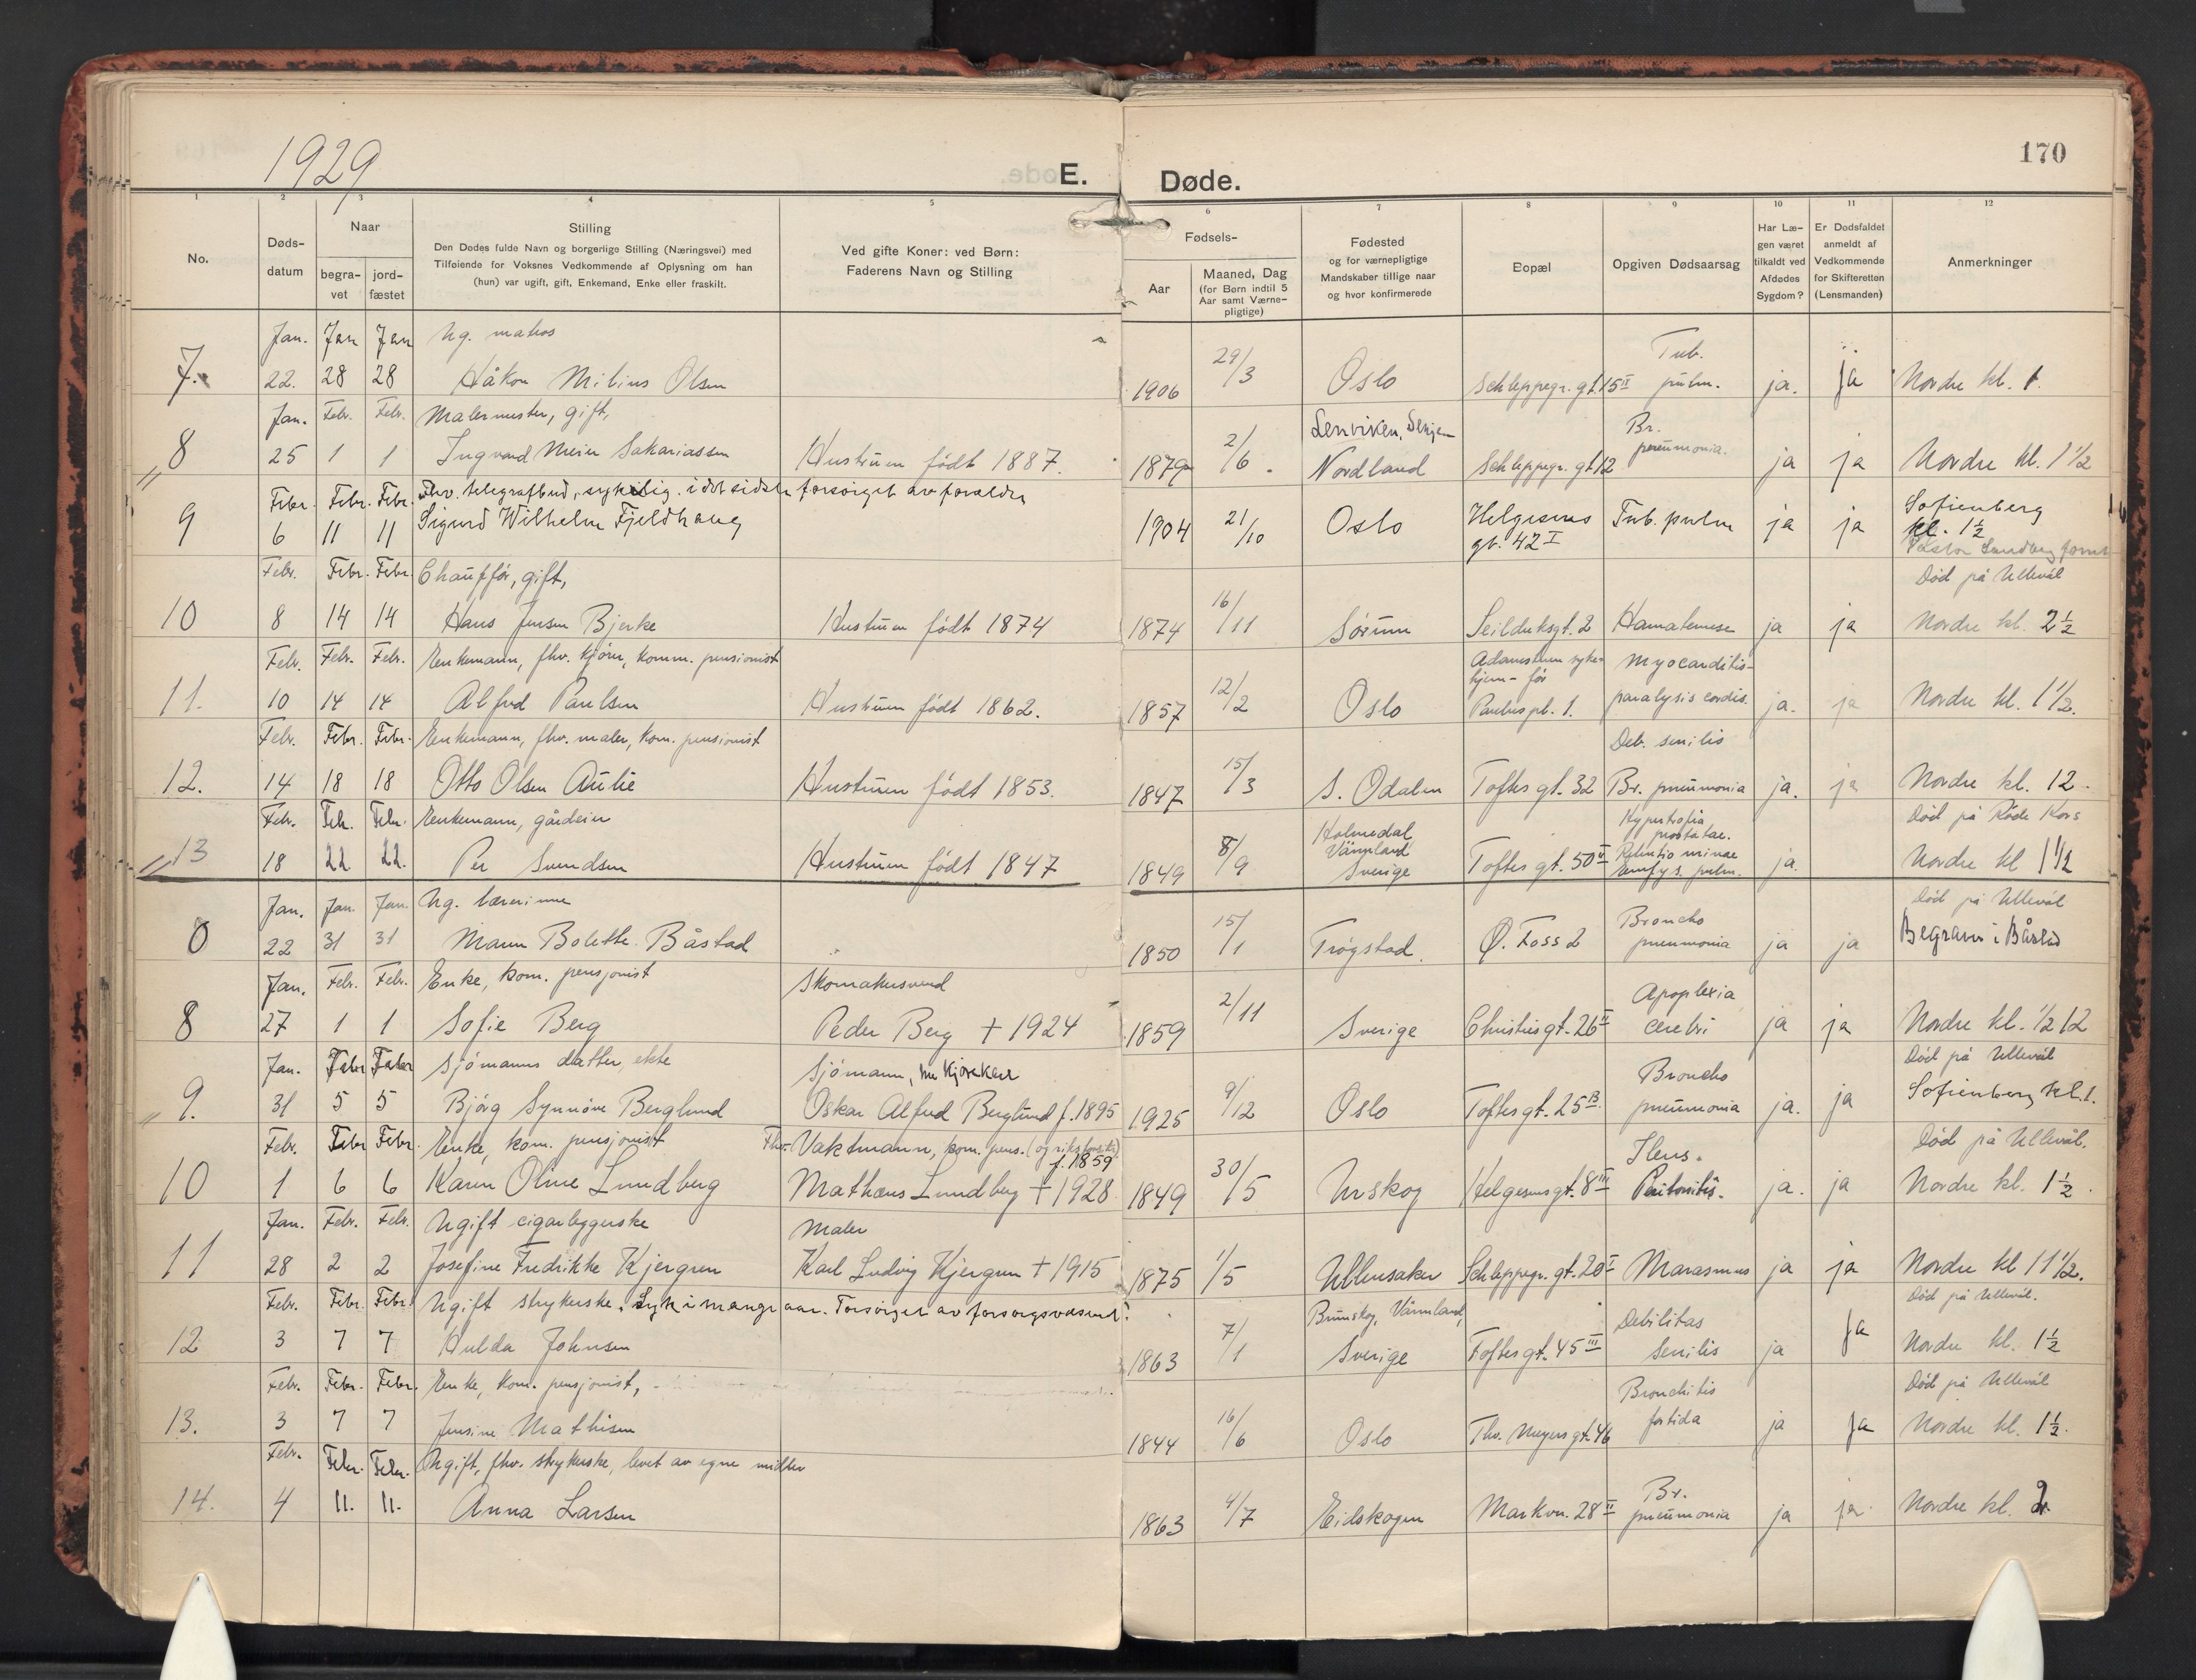 1929
E. Døde.
170
1 2 3 4 5 6 7 8 9 10 11 12
No.
Døds-
datum
Naar
begra-
vet
jord-
fæstet
Stilling
Den Dødes fulde Navn og borgerlige Stilling (Næringsvei) med
Tilføiende for Voksnes Vedkommende af Oplysning om han
(hun) var ugift, gift, Enkemand, Enke eller fraskilt.
Ved gifte Koner: ved Børn:
Faderens Navn og Stilling
Fødsels-
Aar
Maaned, Dag
(for Børn indtil 5
Aar samt Værne-
pligtige)
Fødested
og for værnepligtige
Mandskaber tillige naar
og hvor konfirmerede
Bopæl
Opgiven Dødsaarsag
Har Læ-
gen været
tilkaldt ved
Afdødes
Sygdom?
Er Dødsfaldet
anmeldt af
Vedkommende
for Skifteretten
(Lensmanden)
Anmerkninger
Jan. Jan Jan Ug. matros Tub.
7. 22. 28 28 Håkon Milius Olsen 1906 29/3 Oslo Schleppegr. gt. 15 II pulm. ja. ja Nordre kl. 1.
Jan. Febr. Febr. Malermester, gift, Lenviken, Senjen Br.
8 25 1 1 Ingvard Meier Sakariassen Hustruen født 1887. 1879 2/6 Nordland Schleppegr. gt. 12 pneumonia. ja ja Nordre kl. 1 1/2
Febr. Febr. Febr. Fhv. telegrafbud, sykelig. i det siste forsørget av forældre
9 6 11 11 Sigurd Wilhelm Fjeldhaug 1904 21/10 Oslo Helgesens gt. 42 I Tub. pulm ja ja Sofienberg kl. 1 1/2
Pastor Sundby
Febr. Febr. Febr. Chauffør, gift, Død på Ullevål
10 8 14 14 Hans Jensen Bjerke Hustruen født 1874 1874 16/11 Sørum Seilduksgt. 2 Hamatemese ja ja Nordre kl. 2 1/2
Febr. Febr. Febr. Enkemann, fhv. kjører, komm. pensionist Adamstuen syke-
hjem - før Myocarditis-
11. 10 14 14 Alfred Paulsen Hustruen født 1862. 1857 12/2 Oslo Paulus pl. 1. paralysis cordis. ja. ja Nordre kl. 1 1/2.
Febr. Febr. Febr. Enkemann, fhv. maler, kom. pensionist Deb. senilis
12. 14 18 18 Otto Olsen Aulie Hustruen født 1853. 1847 15/3 S. Odalen Toftes gt. 32 Br. pneumonia ja. ja Nordre kl. 12.
Febr. Feb. Febr. Enkemann, gårdeier Holmedal Hypertrofia Død på Røde Kors
Värmland prostatae.
13 18 22 22. Per Svendsen Hustruen født 1847 1849 8/9 Sverige Toftes gt. 50 II Retentio urinae ja. Nordre kl 1 1/2
Emfys. pulm.
Jan. Jan. Jan. Ug. lærerinne Broncho Død på Ullevål
0 22 31 31 Maren Bolette Båstad 1850 15/1 Trøgstad. Ø. Foss 2 pneumonia ja ja Begraves i Båstad
Jan. Febr. Febr. Enke, kom. pensjonist Skomakersvend Apoplexia
8 27 1 1 Sofie Berg Peder Berg + 1924 1859 2/11 Sverige Christies gt. 26 II cerebri ja ja Nordre kl. 1/2 12
Jan. Febr Febr Sjømanns datter, ekte Sjømann, nu kjørekar Broncho Død på Ullevål
9. 31 5 5 Bjørg Synnøve Berglund Oskar Alfred Berglund f. 1895 1925 9/12 Oslo Toftes gt. 25 B pneumonia ja. ja Sofienberg kl. 1.
Febr. Febr Febr. Enke, kom. pensjonist Fhv. Vaktmann, kom. pens. Ileus. Død på Ullevål.
f. 1859
10 1 6 6 Karen Oline Lundberg Mathæus Lundberg + 1928 1849 30/5 Urskog Helgesens gt. 8 III Peritonitis. ja. ja Nordre kl. 1 1/2.
Jan. Febr. Febr. Ugift cigarleggerske Maler
11 28 2 2 Josefine Fredrikke Kjergren Karl Ludvig Kjergren + 1915 1875 1/5 Ullensaker Schleppegr. gt. 20 I Marasmus ja ja Nordre kl 11 1/2.
Febr. Febr. Febr. Ugift strykerske. Syk i mange aar. Forsørget av forsorgsvæsenet. Brunskog, Värmland, Debilitas Død på Ullevål.
12 3 7 7 Hulda Johnsen 1863 7/1 Sverige Toftes gt. 45 III senilis ja ja Nordre kl. 1 1/2
Febr. Febr. Febr. Enke, kom. pensjonist, Bronchitis Død på Ullevål
13. 3 7 7 Jensine Mathisen 1844 16/6 Oslo Ths. Meyers gt. 46 fœtida ja ja Nordre kl. 1 1/2.
Febr. Febr. Febr. Ugift, fhv. strykerske, levet av egne midler Br.
14. 4 11. 11. Anna Larsen 1863 4/7 Eidskogen Markvn. 28 II pneumonia ja ja Nordre kl. 2.